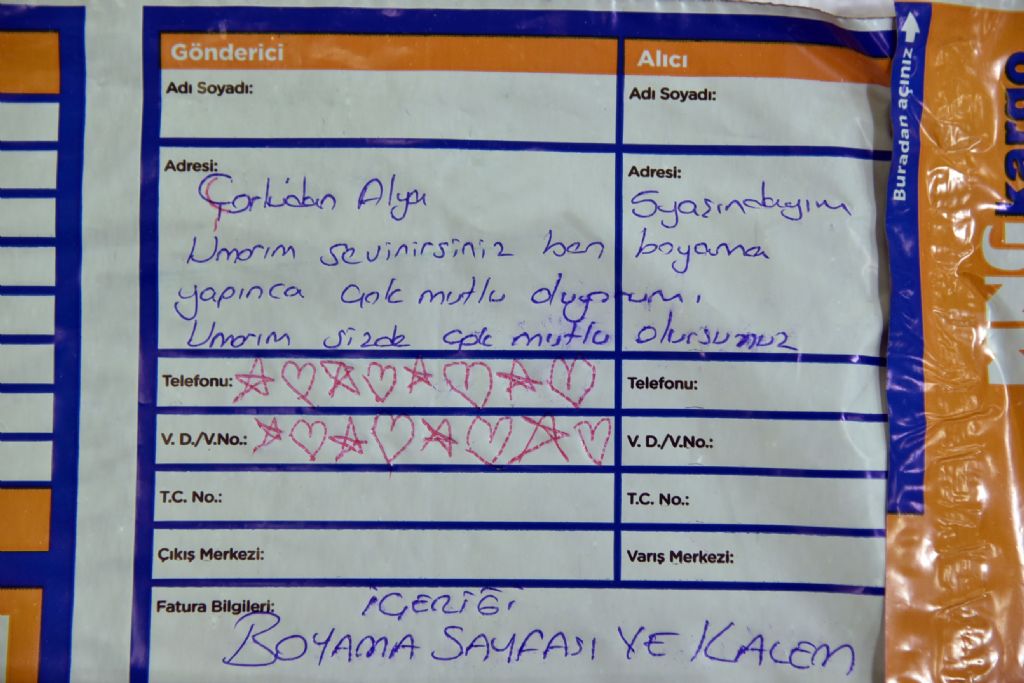 Gönderici Alıcı
Adı Soyadı: Adı Soyadı:
Adresi: Adresi:
Çorlu'dan Alya 5 yaşındayım
Umarım sevinirsiniz ben boyama
yapınca çok mutlu oluyorum.
Umarım sizde çok mutlu olursunuz
Telefonu: Telefonu:
V. D./V.No.: V. D./V.No.:
T.C. No.: T.C. No.:
Çıkış Merkezi: Varış Merkezi:
Fatura Bilgileri: İÇERİĞİ
BOYAMA SAYFASI VE KALEM
Buradan açınız
kargo